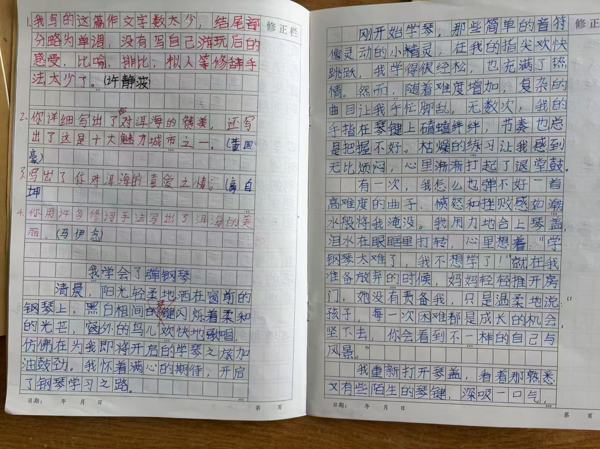 修正栏
1.我写的这篇作文字数太少,结尾部
分略为单调,没有写自己游玩后的
感受,比喻、排比、拟人等修辞手
法太少了。(许静波)
2.你详细写出了对洱海的赞美,还写
出了这是十大魅力城市之一。
3.写出了你对洱海的喜爱之情。
坤)
4.你用许多修辞手法写出了洱海的美
丽。
我学会了弹钢琴
清晨,阳光轻柔地洒在窗前的
钢琴上,黑白相间的键闪烁着柔和
的光芒,窗外的鸟儿欢快地歌唱,
仿佛在为我即将开启的学琴之旅加
油鼓劲。我怀着满心的期待,开启
了钢琴学习之路。
日期: 年 月 日 第 页
修正栏
刚开始学琴,那些简单的音符
像灵动的小精灵,在我的指尖欢快
跳跃,我学得很轻松,也充满了热
情。然而,随着难度增加,复杂的
曲目让我手忙脚乱,无数次,我的
手指在琴键上磕磕绊绊,节奏也总
是把握不好。枯燥的练习让我感到
无比烦闷,心里渐渐打起了退堂鼓。
有一次,我怎么也弹不好一首
高难度的曲子,愤怒和挫败感如潮
水般将我淹没。我用力地合上琴盖,
泪水在眼眶里打转,心里想着:“学
钢琴太难了,我不想学了!”就在我
准备放弃的时候,妈妈轻轻推开房
门,她没有责备我,只是温柔地说:“
孩子,每一次困难都是成长的机会,
坚下去,你会看到不一样的自己与
风景。”
我重新打开琴盖,看着那熟悉
又有些陌生的琴键,深吸一口气,
日期: 年 月 日 第 页